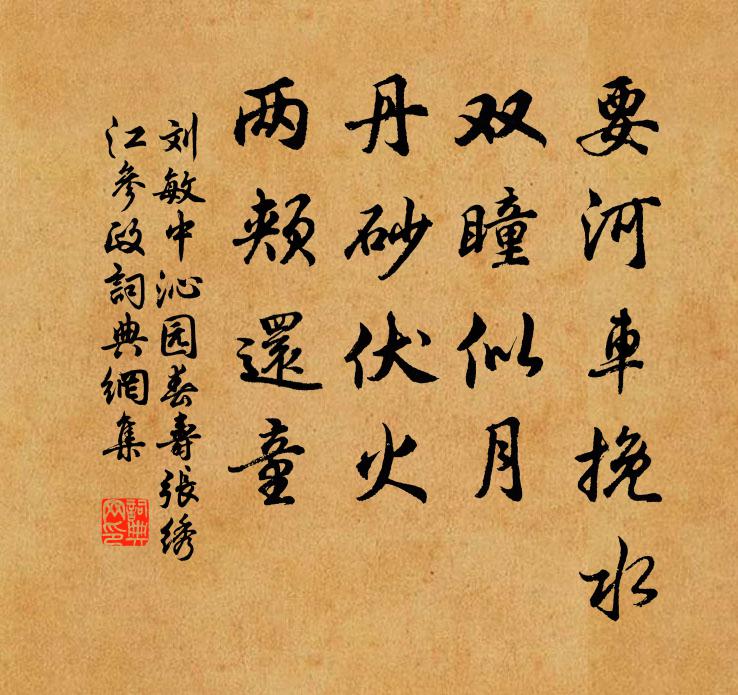 要河車挽水
双瞳似月
丹砂伏火
两頰還童
刘敏中沁园春壽張綉
江參政詞典網集
詞典
网印